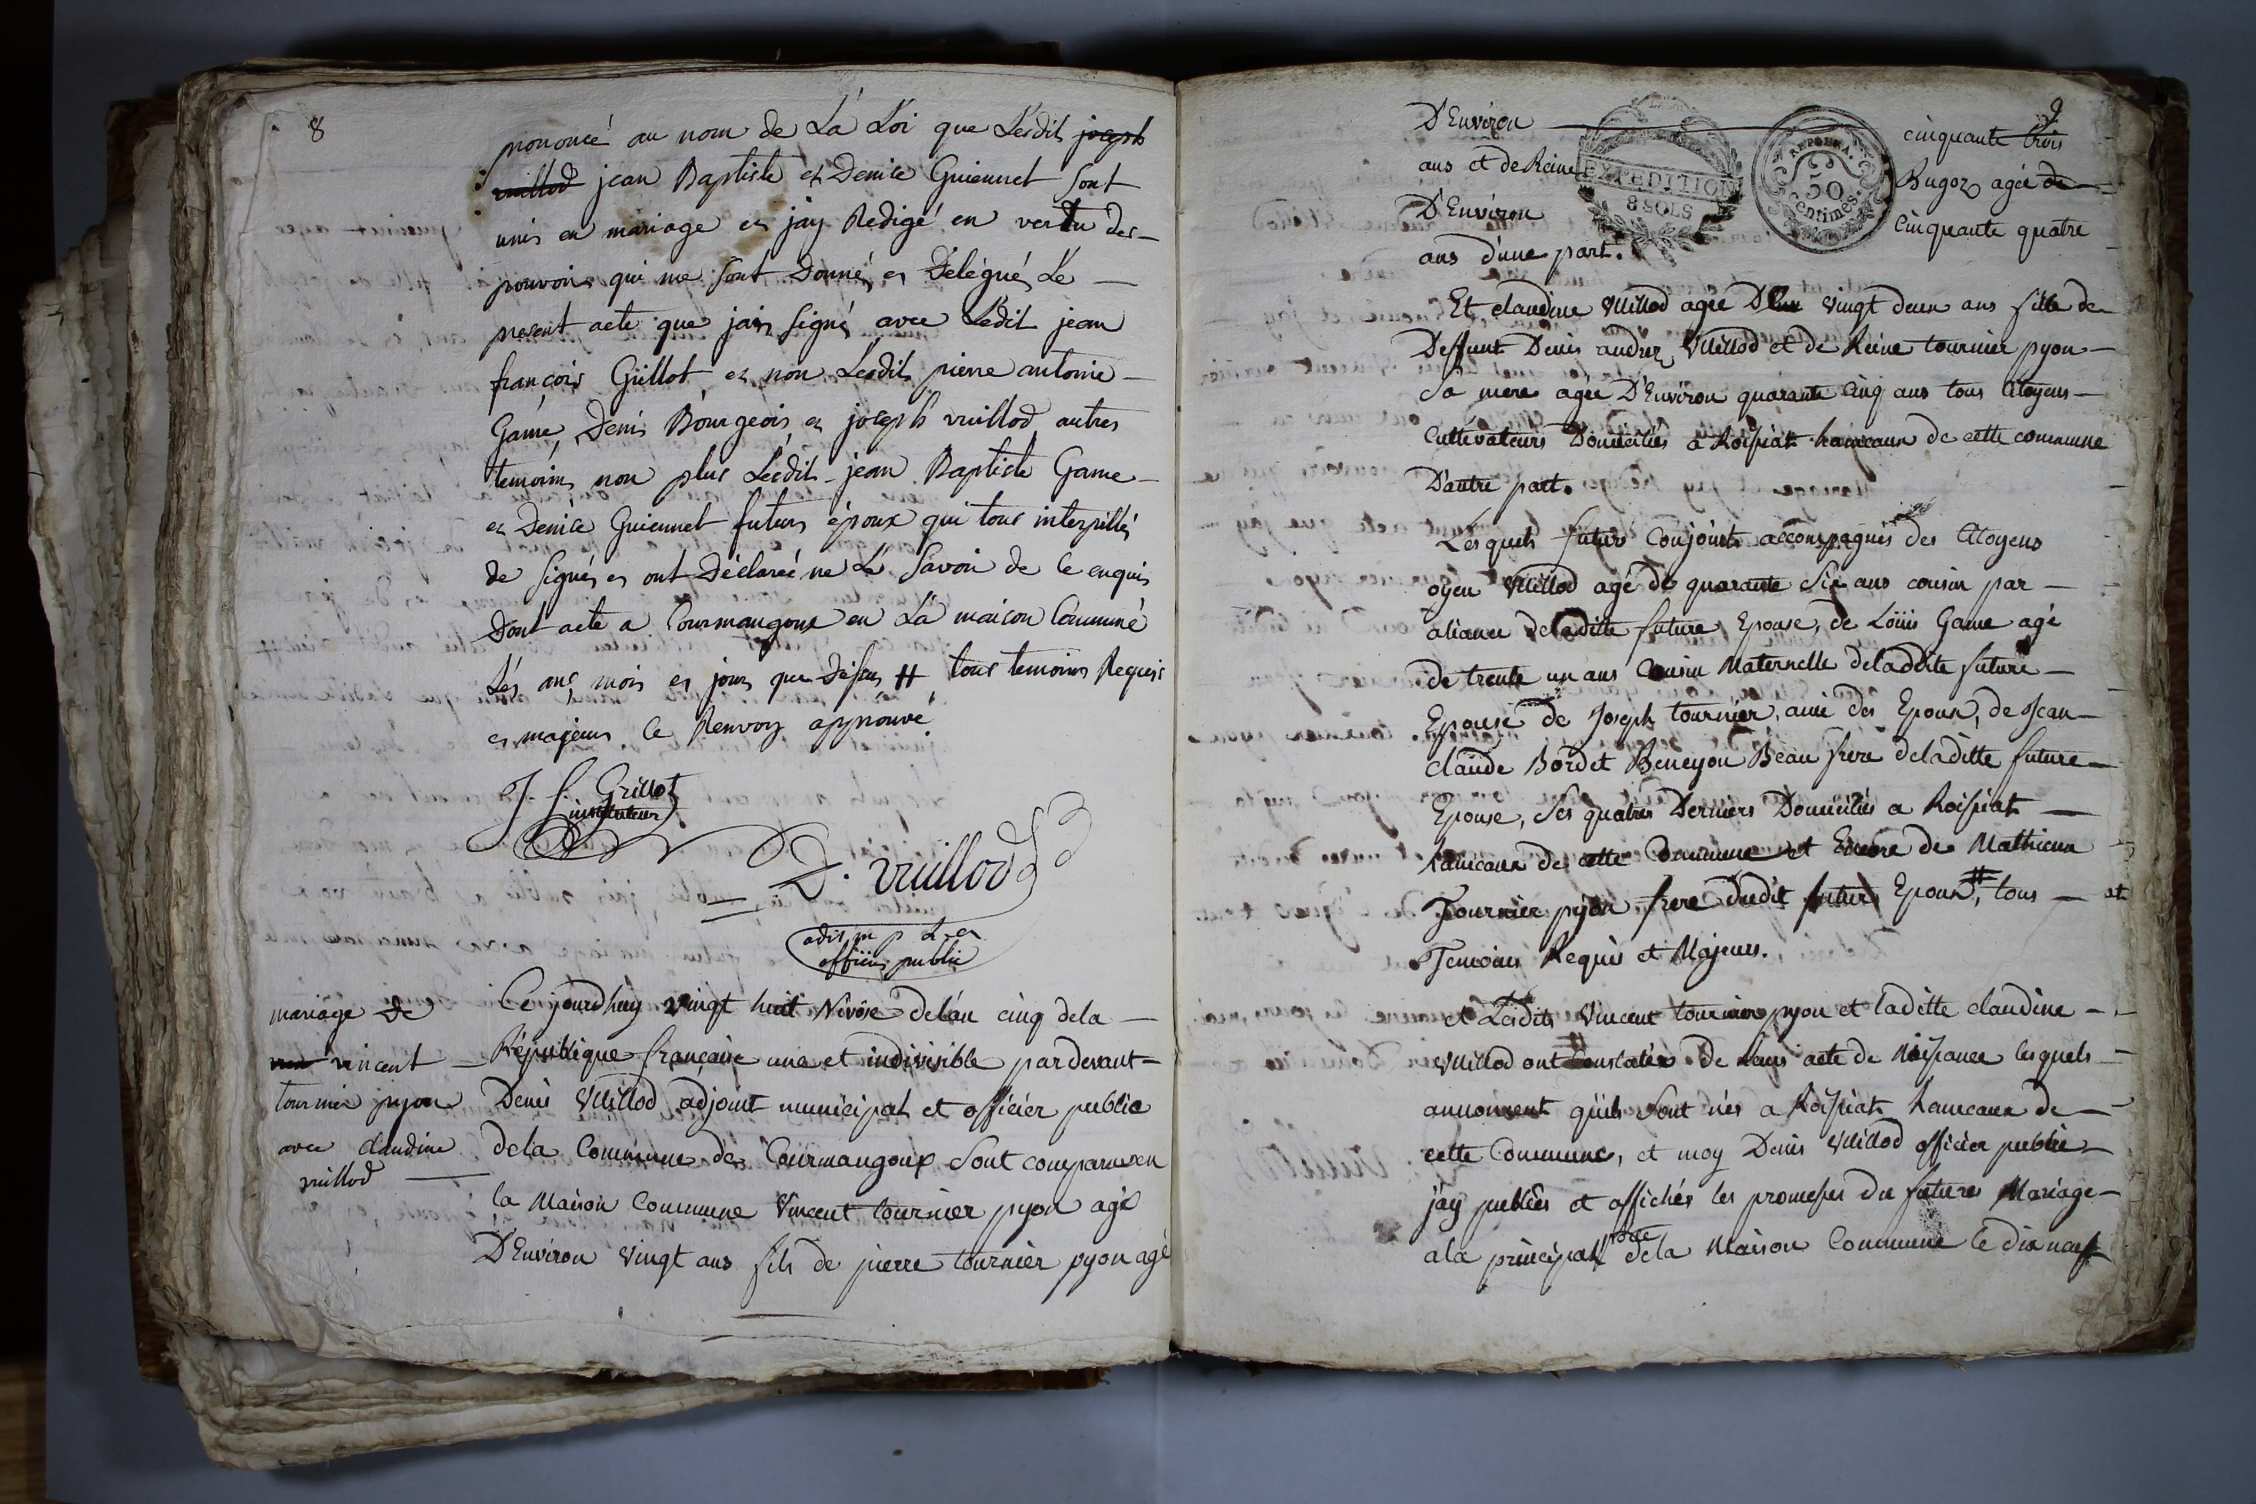 8
prononcé au nom de La Loi que Lesdits joseph
vuillod jean Baptiste et Denice Guiennet sont
unis en mariage et jay Redigé en vertu des
pouvoirs qui me sont Donné, et Delégué, Le
present acte que jais signé avec Ledit jean
françois Grillot et non Lesdits pierre antoine
Game, Denis Bourgeois, et joseph vuillod autres
temoins, non plus Lesdits jean Baptiste Game
et Denice Guiennet futurs époux qui tous interpellés
de signés et ont Déclareé ne Le savoir de ce enquis
Dont acte a Courmangoux en La maison Commune
Lés ans, mois et jours que Dessus # tous temoins Requis
et majeurs le Renvoy approuvé
J. f. Grillot
instituteur
D. vuillod
officier public
mariage de
vincent
tournier pyon
avec claudine
vuillod
Cejourdhuy vingt huit Nivôse delan cinq dela
République française une et indivisible pardevant
Denis Vuillod adjoint municipal et officier public
dela Commune de Courmangoux sont comparus en
la Maison Commune Vincent tournier pyon agé
D'Environ vingt ans fils de pierre tournier pyon agé
9
D'Environ cinquante trois
ans et de Reine Bugoz agée de
D'Environ cinquante quatre
ans d'une part.
EXPEDITION
8 SOLS
50
centimes
Et claudine Vuillod agée vingt deux ans fille de
Deffunt Denis andrez Vuillod et de Reine tournier pyon
sa mere agée D'Environ quarante cinq ans tous Citoyens
Cultivateurs Domiciliés a Roissiat hameaux de cette commune
D'autre part.
Lesquels futur Conjoints accompagnés des Citoyens
oyen Vuillod agé de quarante six ans cousin par
aliance deladitte future Epouse, de Loüis Game agé
de trente un ans Cousin Maternelle deladite future
Epouse de Joseph tournier, ami des Epoux, de Jean
claude Bordet Beneyon Beau frere deladitte future
Epouse, ses quatres Derniers Domiciliés a Roissiat
hameaux de cette Commune et Encore de Mathieux
Tournier pyon frere dudit futur Epoux, # tous et
Temoins Requis et Majeurs.
et Lesdits Vincent tournier pyon et laditte claudine
Vuillod ont constatés de leurs acte de Naissance lesquels
annoncent qu'ils sont nés a Roissiat hameaux de
cette Commune, et moy Denis Vuillod officier public
j'ay publiés et affichés les promesses du futures Mariage
ala principall porte dela Maison Commune le dix neuf